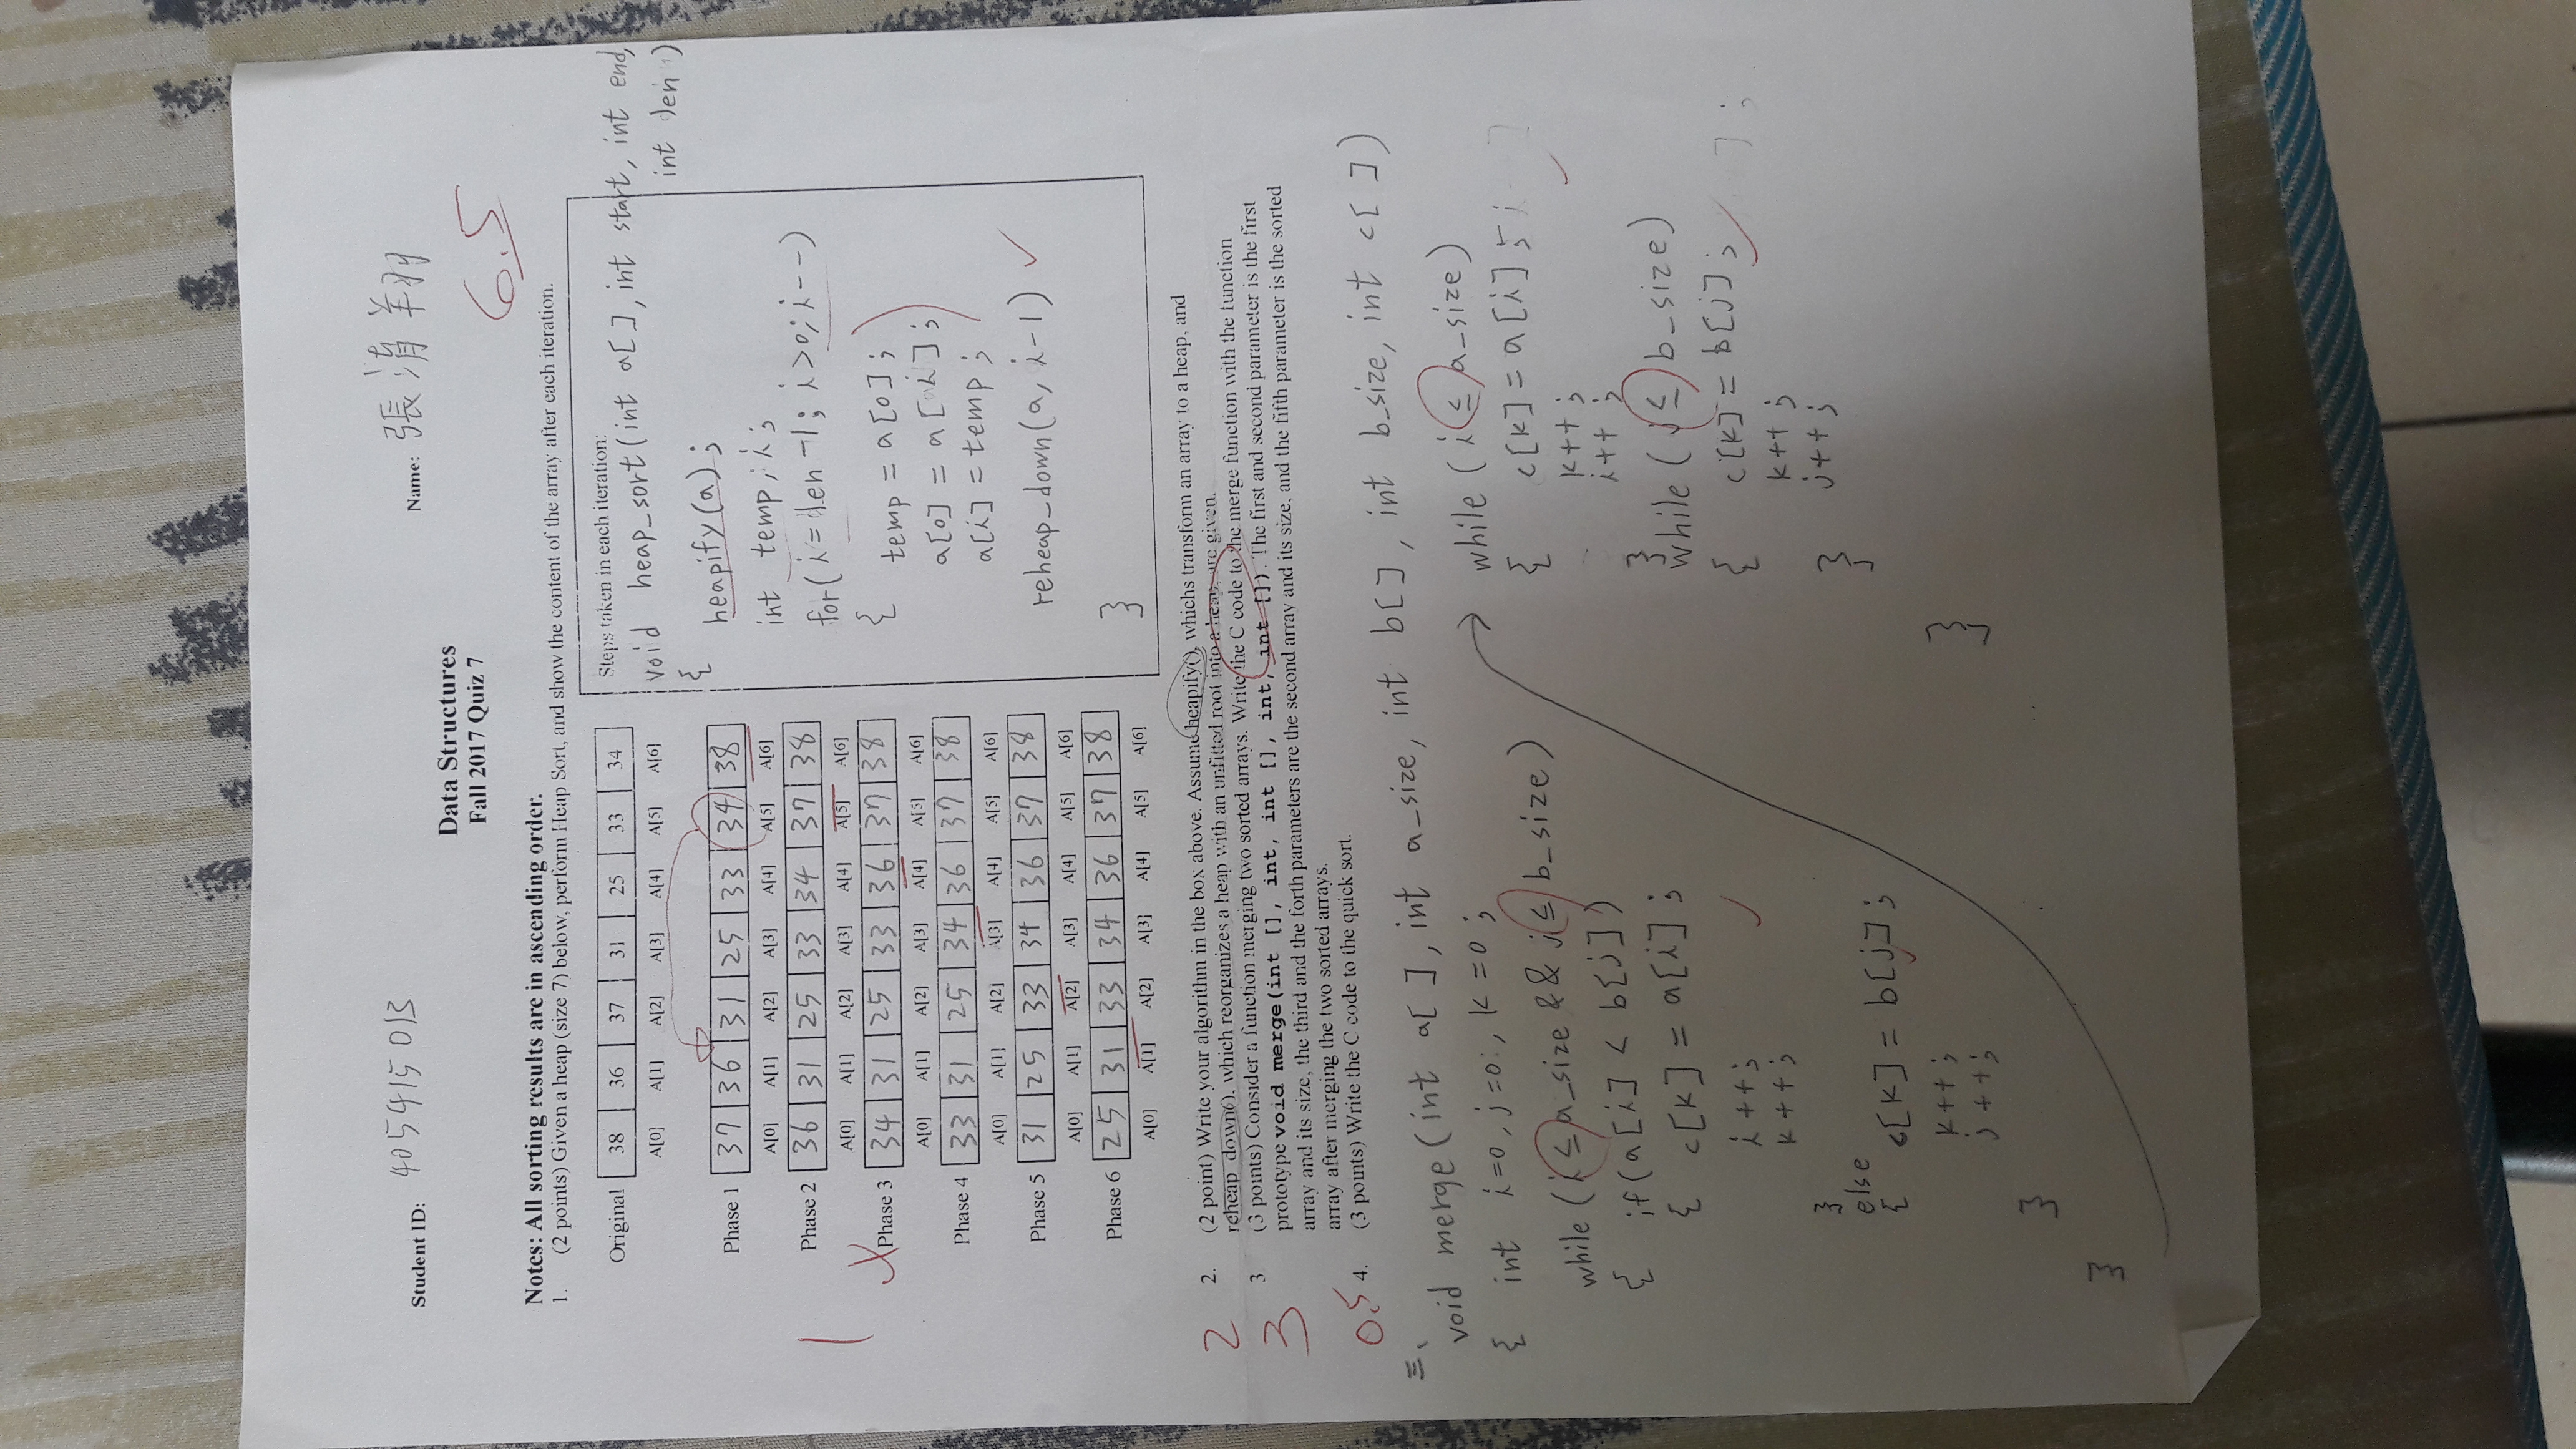 Student ID: 405415013
Name: 張清翔
Data Structures
Fall 2017 Quiz 7
6.5
Notes: All sorting results are in ascending order.
1. (2 points) Given a heap (size 7) below, perform Heap Sort, and show the content of the array after each iteration.
Original 38 36 37 31 25 33 34
A[0] A[1] A[2] A[3] A[4] A[5] A[6]
Phase 1 37 36 31 25 33 34 38
A[0] A[1] A[2] A[3] A[4] A[5] A[6]
Phase 2 36 31 25 33 34 37 38
A[0] A[1] A[2] A[3] A[4] A[5] A[6]
1
X Phase 3 34 31 25 33 36 37 38
A[0] A[1] A[2] A[3] A[4] A[5] A[6]
Phase 4 33 31 25 34 36 37 38
A[0] A[1] A[2] A[3] A[4] A[5] A[6]
Phase 5 31 25 33 34 36 37 38
A[0] A[1] A[2] A[3] A[4] A[5] A[6]
Phase 6 25 31 33 34 36 37 38
A[0] A[1] A[2] A[3] A[4] A[5] A[6]
Steps taken in each iteration:
void heap_sort(int a[], int start, int end,
int len)
{
heapify(a);
int temp, i;
for(i=len-1; i>0; i--)
{ temp = a[0];
a[0] = a[i];
a[i] = temp;
reheap_down(a, i-1) ✓
}
2 2. (2 point) Write your algorithm in the box above. Assume heapify(), whichs transform an array to a heap, and
reheap_down(), which reorganizes a heap with an unfitted root into a heap, are given.
3 3 (3 points) Consider a function merging two sorted arrays. Write the C code to the merge function with the function
prototype void merge(int [], int, int [], int, int []). The first and second parameter is the first
array and its size, the third and the forth parameters are the second array and its size, and the fifth parameter is the sorted
array after merging the two sorted arrays.
0.5 4. (3 points) Write the C code to the quick sort.
三、
void merge(int a[], int a_size, int b[], int b_size, int c[])
{ int i=0, j=0, k=0;
while(i≤a_size && j≤b_size)
{ if(a[i] < b[j])
{ c[k] = a[i];
i++;
k++;
}
else
{ c[k] = b[j];
k++;
j++;
}
}
while(i≤a_size)
{ c[k] = a[i];
k++;
i++;
}
while(j≤b_size)
{ c[k] = b[j];
k++;
j++;
}
}